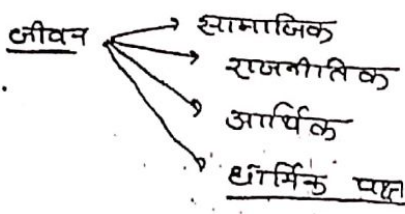 जीवन
सामाजिक
राजनीतिक
आर्थिक
धार्मिक पक्ष